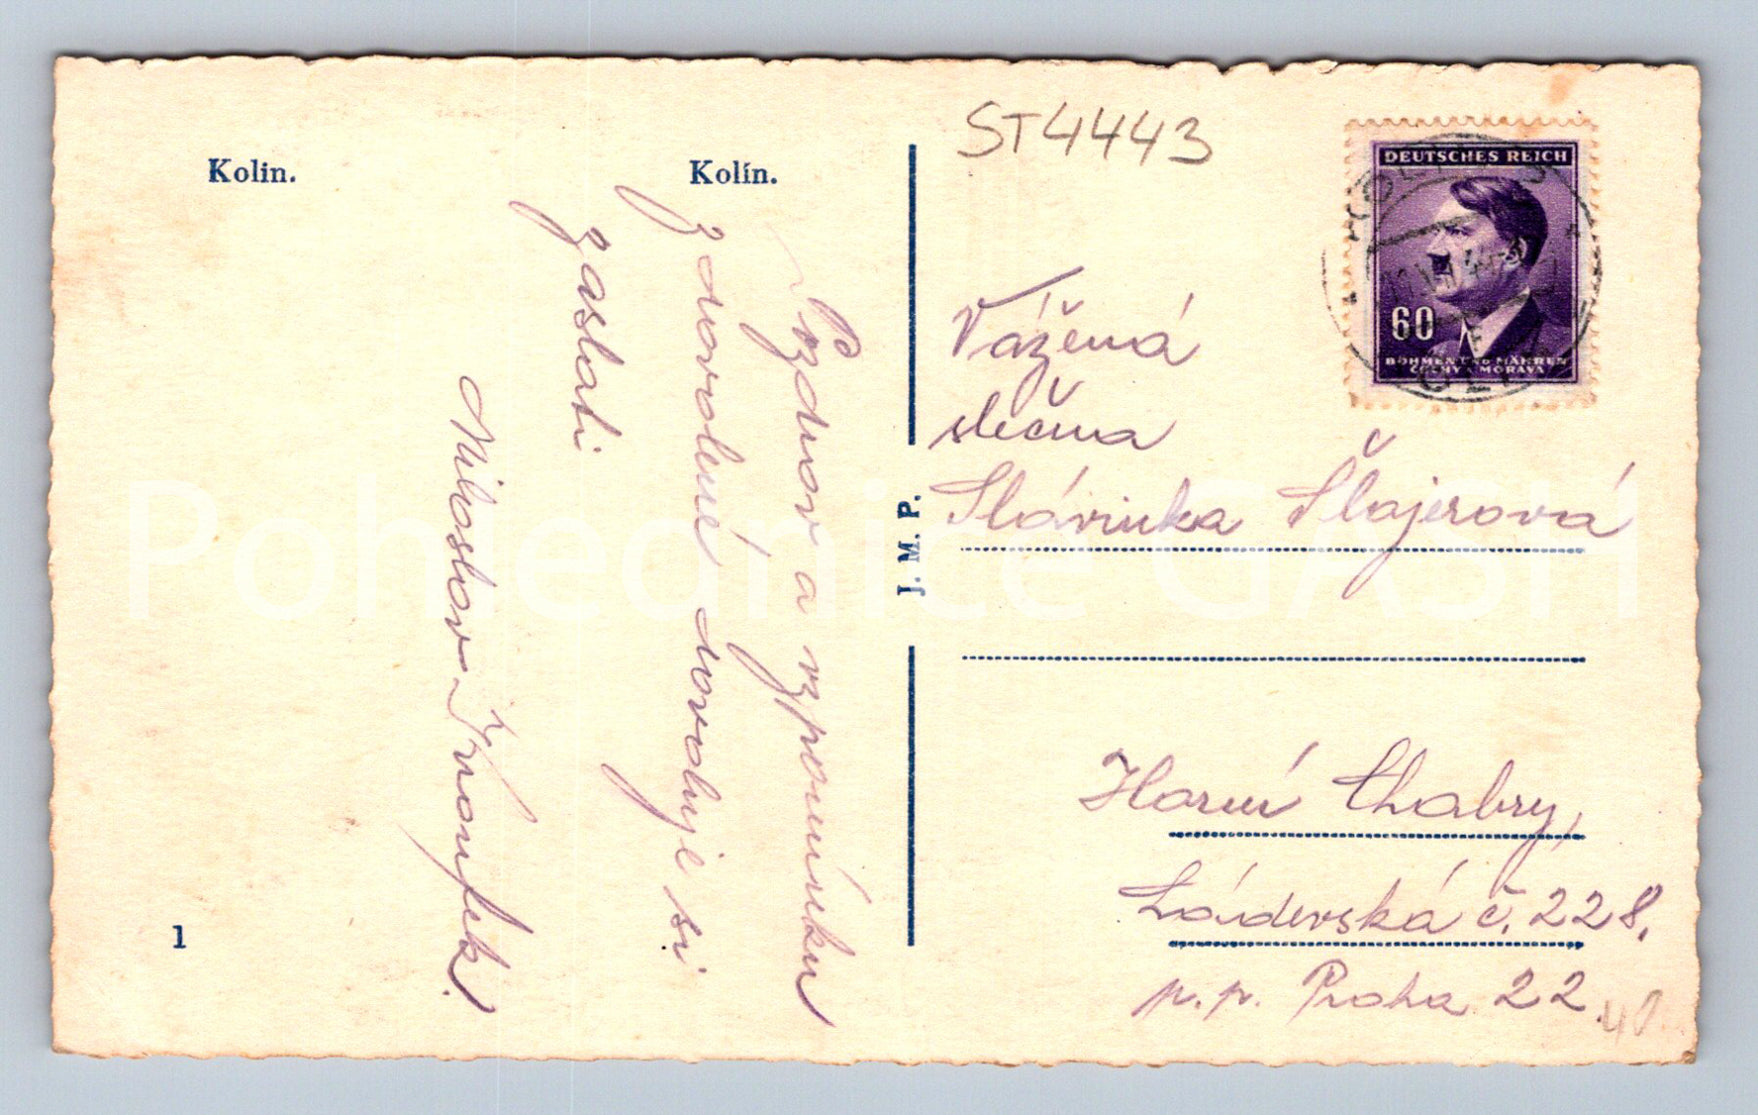 Kolin.
Kolín.
Pozdrav a vzpomínku
z dovolené dovoluje si
zaslati
Miloslav
J. M. P.
1
ST4443
DEUTSCHES REICH
60
BÖHMEN UND MÄHREN
ČECHY A MORAVA
Vážená
slečna
Slávinka Šlajerová
Horní Chabry,
č. 228.
p.p. Praha 22.
40
Pohlednice GASH